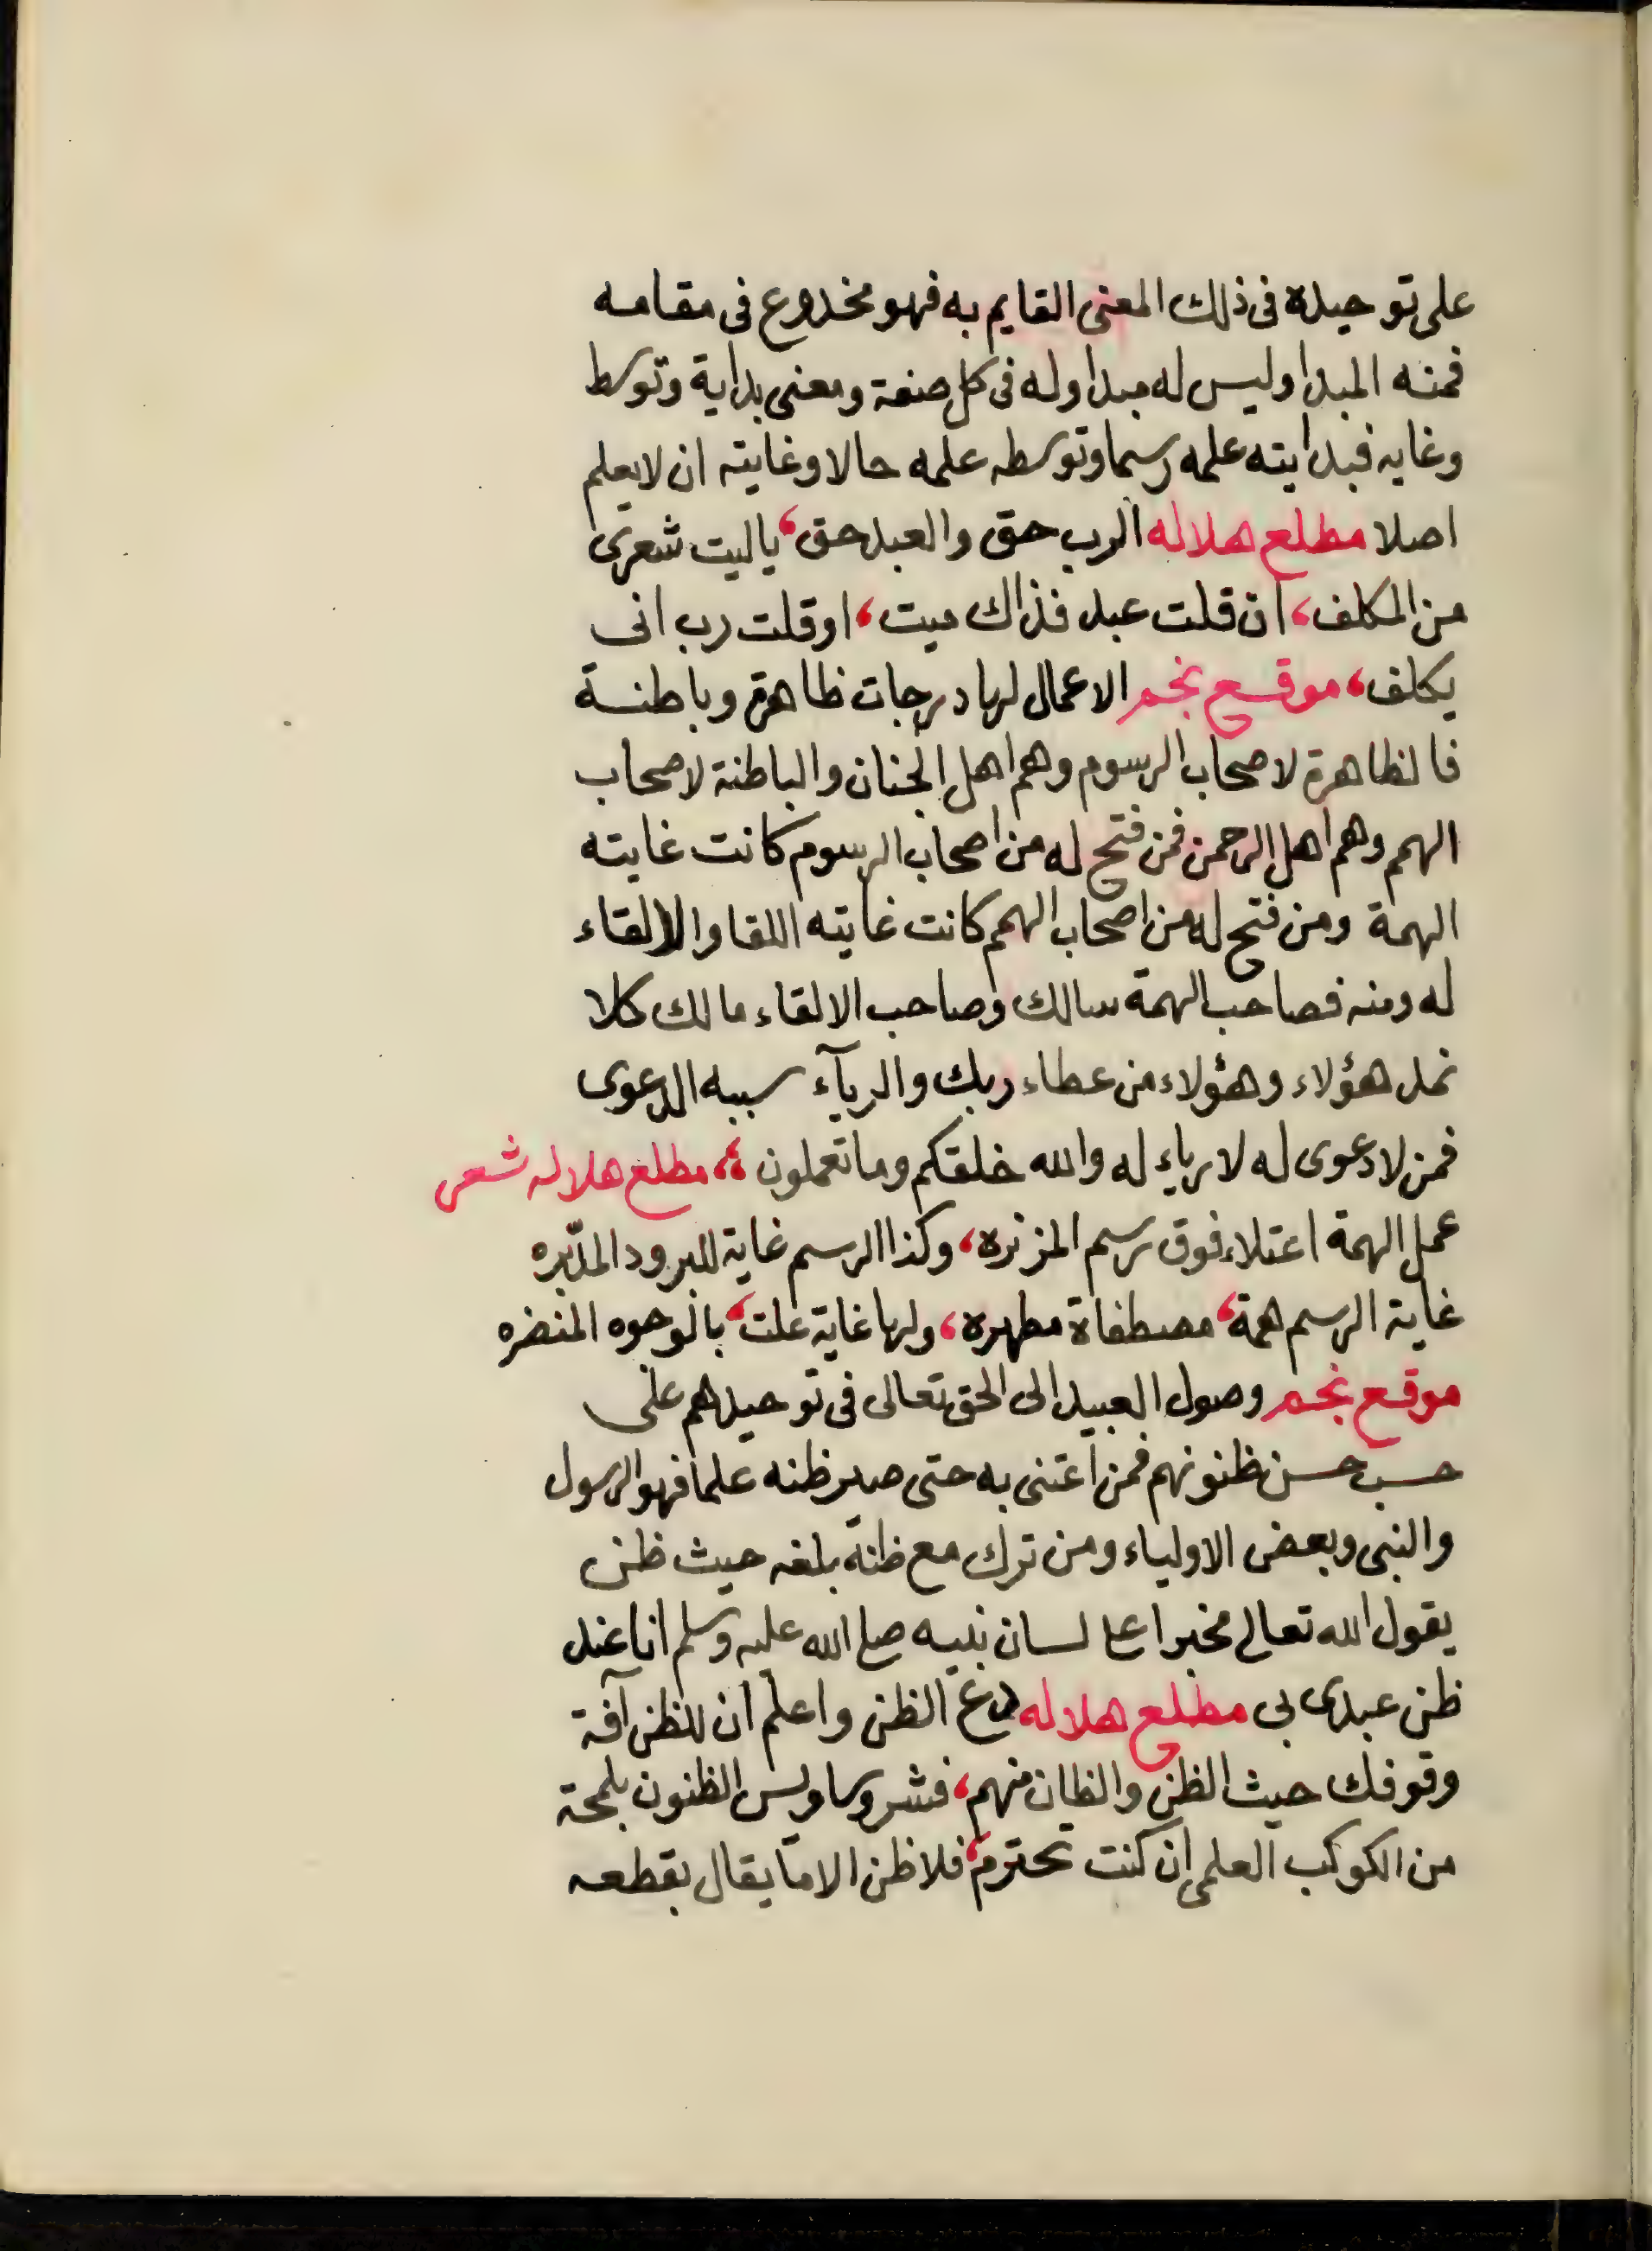 على توحيده فى ذلك المعنى القايم به فهو مخدوع فى مقامه
فمنه المبدا وليس له مبدا وله فى كل صنعة ومعنى بداية وتوسط
وغايه فبدايته علمه رسما وتوسطه علمه حالا وغايته ان لا يعلم
اصلا مطلع هلاله الرب حق والعبد حق، ياليت شعرى
من المكلف، ان قلت عبد فذاك ميت، اوقلت رب انى
يكلف، موقع نجم الاعمال لها درجات ظاهرة وباطنة
فالظاهرة لاصحاب الرسوم وهم اهل الجنان والباطنة لاصحاب
الهمم وهم اهل الرحمن فمن فتح له من اصحاب الرسوم كانت غايته
الهمة ومن فتح له من اصحاب الهمم كانت غايته اللقا والالقاء
له ومنه فصاحب الهمة سالك وصاحب الالقاء مالك كلا
نمد هؤلاء وهؤلاء من عطاء ربك والريآء سببه الدعوى
فمن لا دعوى له لا رياء له والله خلقكم وما تعملون ،، مطلع هلاله شعر
عمل الهمة اعتلاء فوق رسم المزنره، وكذا الرسم غاية للبرود المدبره
غاية الرسم همة، مصطفاة مطهره، ولها غاية علت، بالوجوه المنضره
موقع نجم وصول العبيد الى الحق تعالى فى توحيدهم على
حسب حسن ظنونهم فمن اعتنى به حتى صير ظنه علما فهو الرسول
والنبى وبعض الاولياء ومن ترك مع ظنه بلغه حيث ظن
يقول الله تعالى مخبرا على لسان نبيه صلى الله عليه وسلم انا عند
ظن عبدى بى مطلع هلاله دع الظن واعلم ان للظن آفة
وقوفك حيث الظن والظان منهم، فشرد الظنون بلمحة
من الكوكب العلمى ان كنت تحترم، فلا ظن الا ما يقال بقطعه